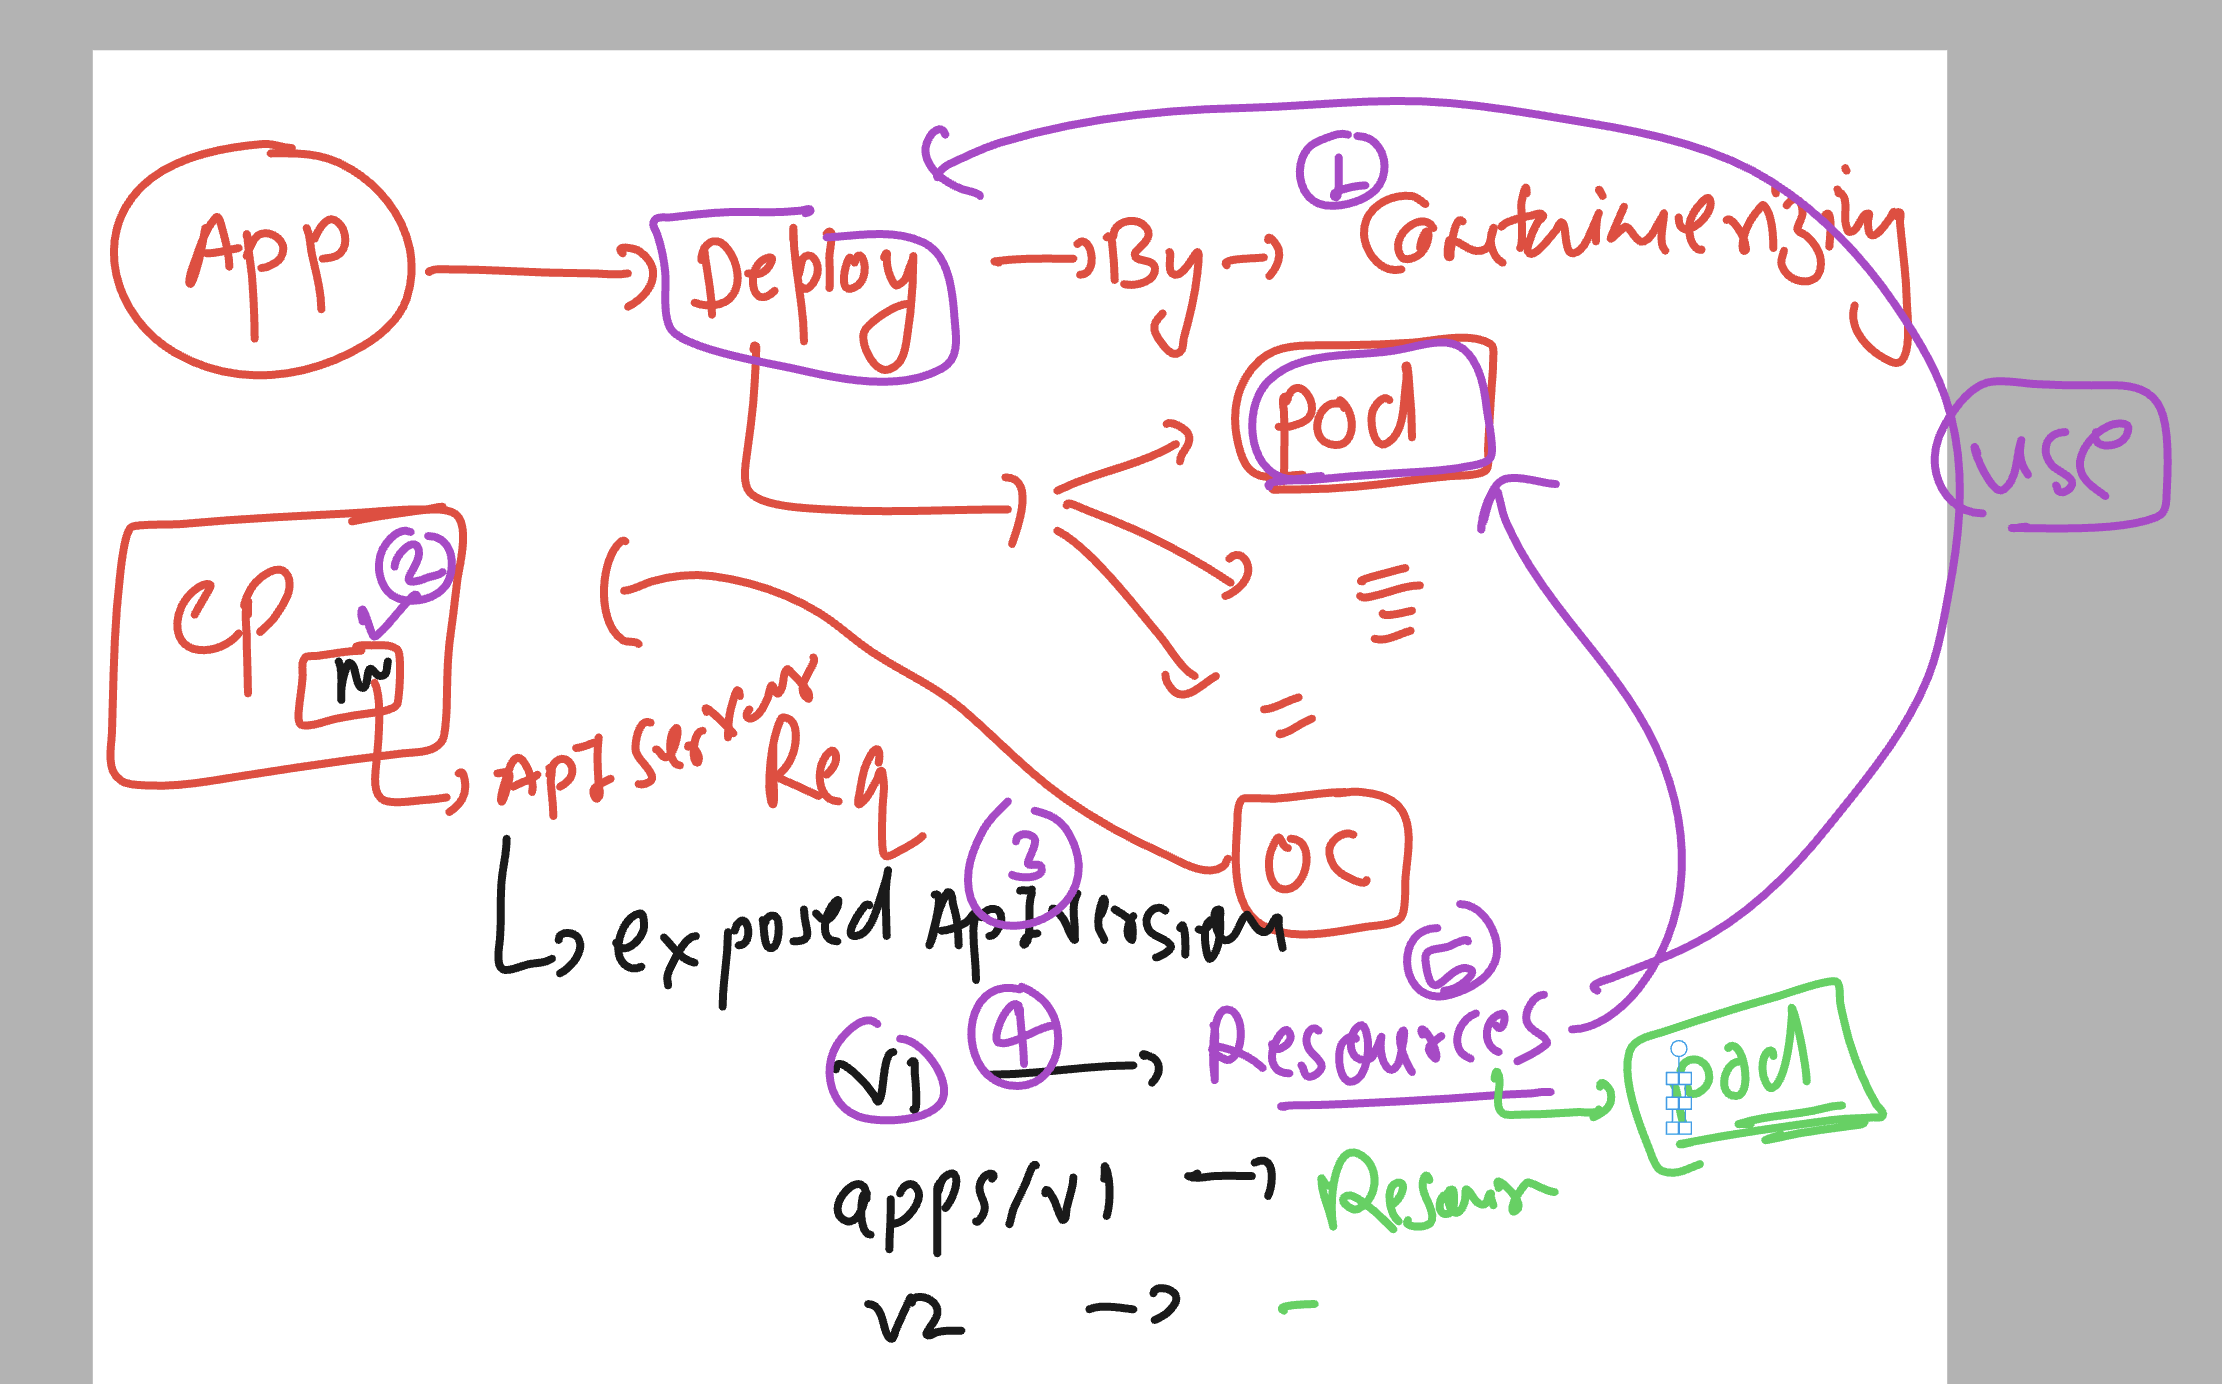 App Deploy By ① Containerizing
Pod
use
CP ②
m
API Server
Req
OC
③
exposed API Version
⑤
v1 ④ Resources
pod
apps/v1 Resour
v2